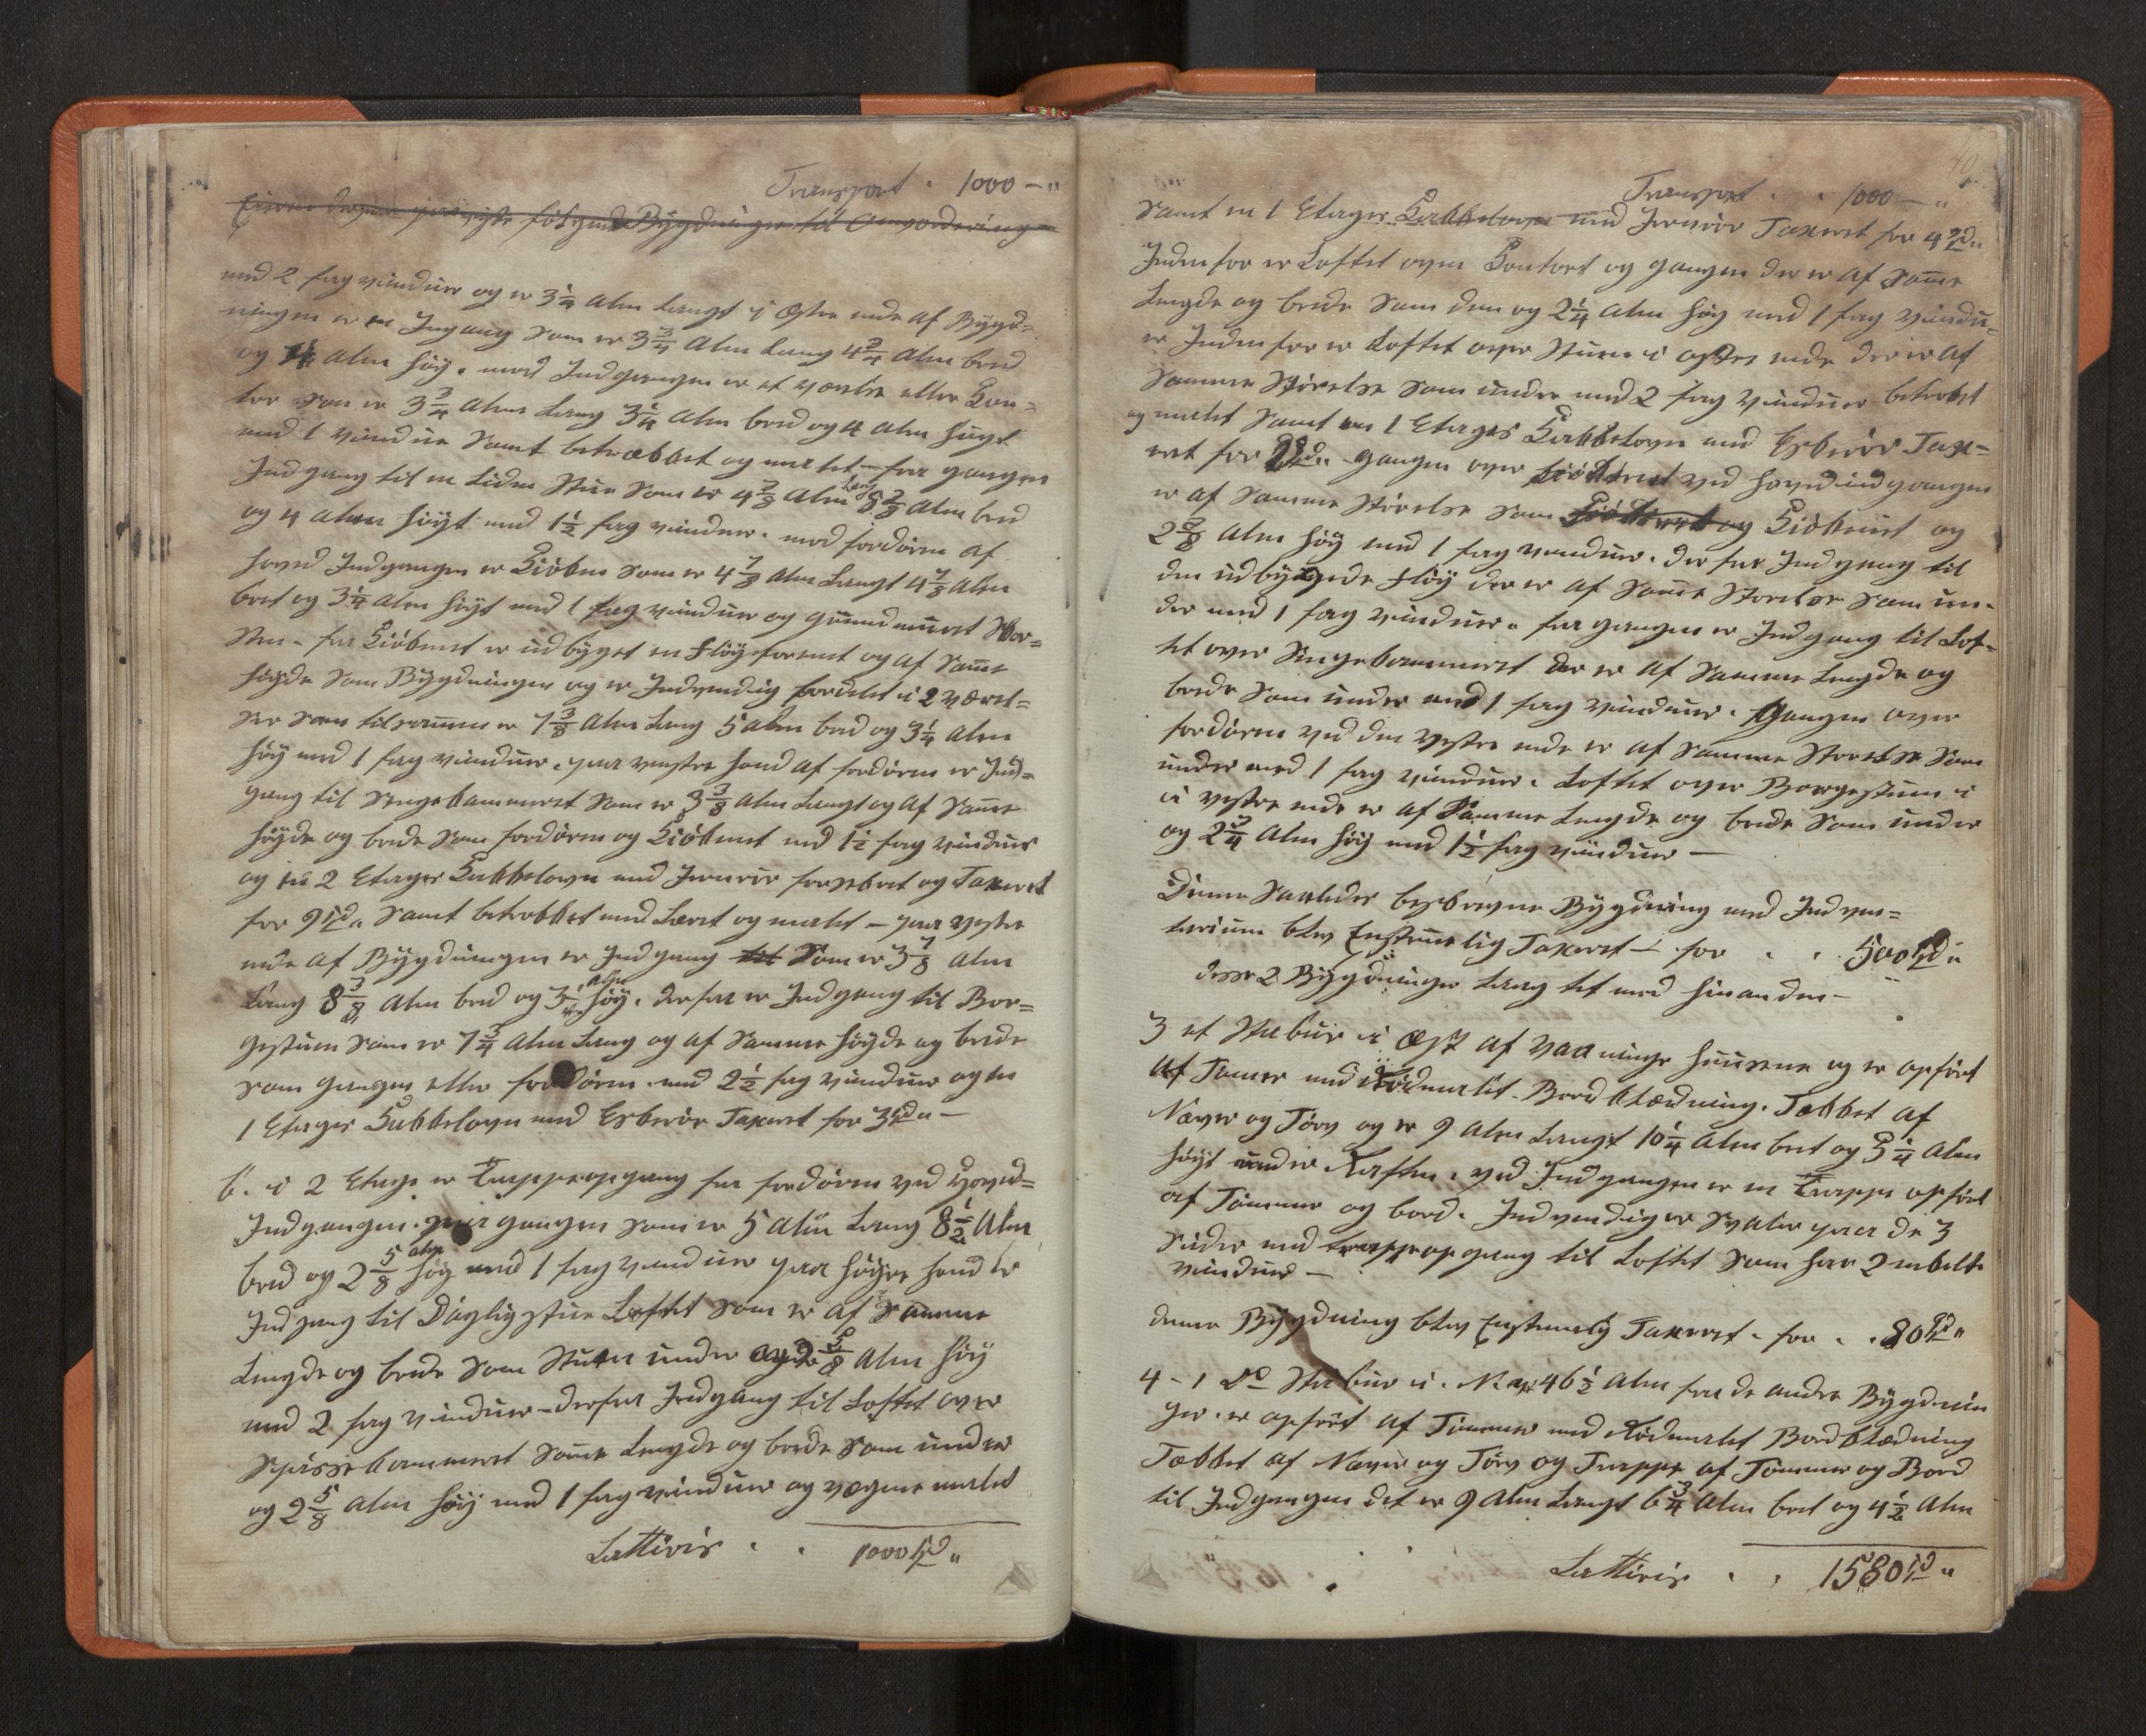 Transport . 1000 – "
Eieren derpaa paaviste følgende Bygdninger til Omvordering
med 2 fag vinduer og er 3 1/4 Alen Langt i Østre ende af Bygd=
ningen er en Ingang som er 3 3/4 Alen Lang 4 3/4 Alen bred
og 4 Alen høy. mod Indgangen er et værelse eller Con=
tor som er 3 3/4 Alen Lang 3 1/4 Alen bred og 4 Alen høyt
med 1 vindue samt betrækket og malet – fra gangen
Indgang til en Liden Stue som er 4 7/8 Alen Lang 8 3/8 Alen bred
og 4 Alen høyt med 1 1/2 fag vinduer. mod fordøren af
hoved Indgangen er Kiøken som er 4 7/8 Alen Langt 4 7/8 Alen
bret og 3 1/4 Alen høyt med 1 fag vinduer og grundmuret Skor=
sten – fra Kiøkenet er udbyget en Fløy forent og af Samme
høyde som Bygdningen og er Indvendig fordelet i 2 værel=
ser som tilsammen er 7 3/8 Alen Lang 5 Alen bred og 3 1/4 Alen
høy med 1 fag vinduer. paa venstre haand af fordøren er Ind=
gang til Sengekammeret som er 3 3/8 Alen Langt og af Samme
høyde og brede som fordøren og Kiøkenet med 1 1/2 fag vinduer
og en 2 Etages Kakkelovn med Jernrør forsekret og Taxeret
for 9 Spd " samt betrekket med Læret og malet – paa vestre
ende af Bygdningen er Indgang til Som er 3 7/8 Alen
Lang 8 3/8 Alen bred og 3 1/4 Alen høy. derfra er Indgang til Bor=
gestuen som er 7 3/4 Alen Lang og af Samme høyde og brede
som gangen eller fordøren med 2 1/2 fag vinduer og en
1 Etages Kakkelovn med Eskerør Taxeret for 3 Spd " –
b. i 2 Etage er Trappeopgang fra fordøren ved Hoved=
Indgangen. paa gangen som er 5 Alen Lang 8 1/2 Alen
bred og 2 5/8 alen høy med 1 fag vinduer paa høyre haand er
Indgang til Dagligstue Loftet som er af Samme
Lengde og brede som Stuen under og 2 5/8 Alen høy
med 2 fag vinduer – derfra Indgang til Loftet over
Spissekammeret Samme Lengde og brede som under
og 2 5/8 Alen høy med 1 fag vinduer og væggene malet
Lattiris . . 1000 Spd "
Transport . . 1000 – "
Samt en 1 Etages Kakkelovn med Jernrør Taxeret for 4 Spd "
Indenfor er Loftet over Contort og gangen der er af Samme
Lengde og brede som den og 2 1/4 Alen høy med 1 fag vindu=
er Indenfor er Loftet over Stuen i østre ende der er af
Samme Størelse som under med 2 fag vinduer betrekket
og malet Samt en 1 Etages Kakkelovn med Eskerør Tax=
ret for Spd " – gangen over ved hovedindgangen
er af Samme Størelse som og Kiøkenet og
2 5/8 Alen høy med 1 fag vinduer. derfra Indgang til
den udbygede Fløy der er af Samme Størelse som un=
der med 1 fag vinduer. fra gangen er Indgang til Lof=
tet over Sengekammeret der er af Samme Lengde og
brede som under med 1 fag vinduer. Gangen over
fordøren ved den vestre ende er af Samme Størelse som
under med 1 fag vinduer. Loftet over Borgestuen i
i vestre ende er af Samme Lengde og brede som under
og 2 3/4 Alen høy med 1 1/2 fag vinduer –
Denne Saaledes beskrevne Bygdning med Indven=
tarium blev Enstemelig Taxeret – for . . 500 Spd "
disse 2 Bygdninger laag tet mod hinanden –
3 et Stabur i Øst af vaaninge huusene og er opført
af Tømer med Rødmalit Bordklædning. Tækket af
Næver og Tørv og er 9 Alen Langt 10 1/4 Alen bret og 5 1/4 Alen
høyt under Raften. ved Indgangen er en Trappe opført
af Tømmer og bord. Indvendig er Svaler paa de 3
Sider med trappeopgang til Loftet som har 2 enkelte
vinduer –
denne Bygdning blev Enstemelig Taxeret – for . . 80 Spd "
4 – 1 Do Stabur i 46 1/2 Alen fra de andre Bygdnin
ger. er opført af Tømmer med Rødmalet Bordklædning
Tækket af Næver og Tørv og Trappe af Tømmer og Bord
til Indgangen det er 9 Alen Langt 6 3/4 Alen bret og 4 1/2 Alen
Lattiris . . 1580 Spd "